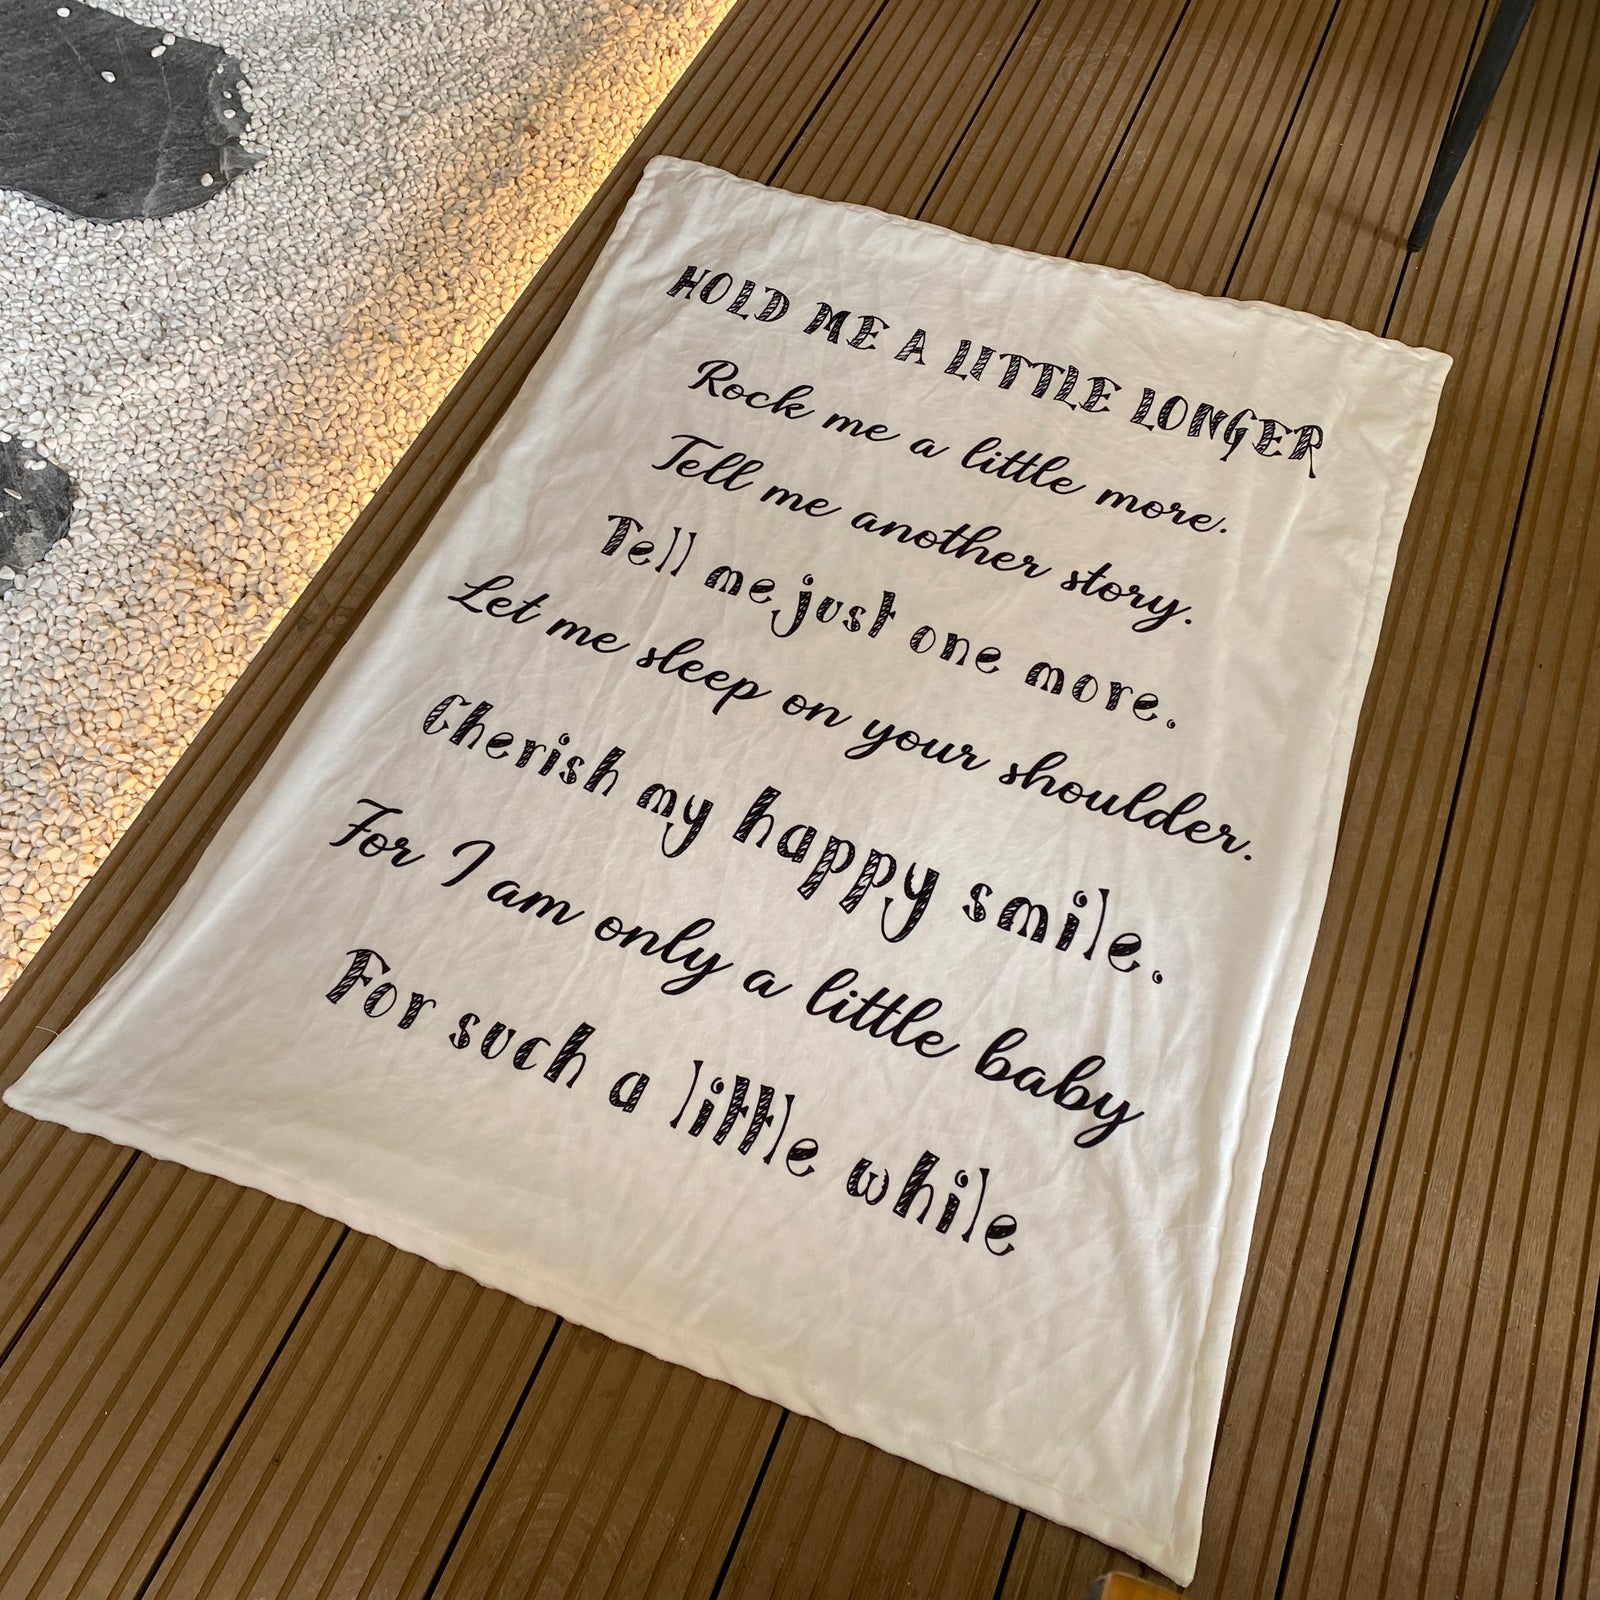 HOLD ME A LITTLE LONGER
Rock me a little more.
Tell me another story.
Tell me just one more.
Let me sleep on your shoulder.
Cherish my happy smile.
For I am only a little baby
For such a little while